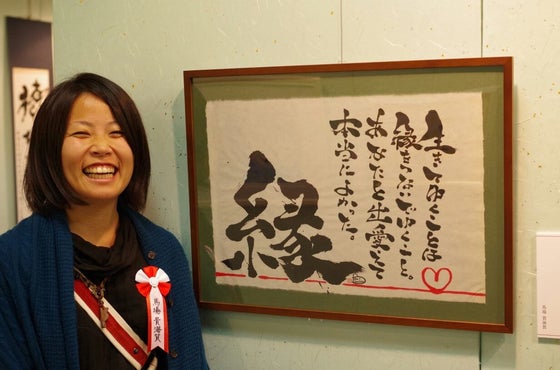 生きてゆくことは
縁をつないでゆくこと。
あなたと出愛えて
本当によかった。
縁
馬場 貴海賀
馬場 貴海賀